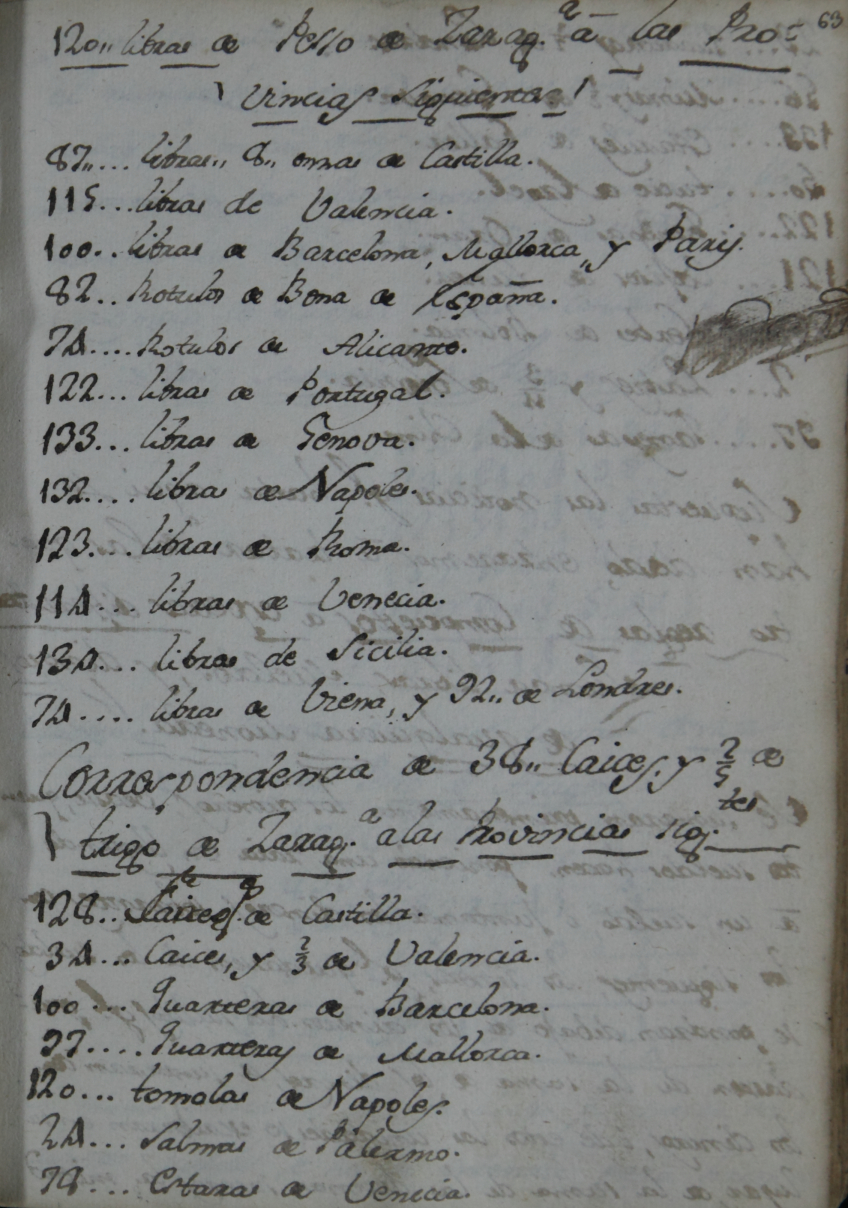 63
120,, libras de Peso de Zarag.ª â las Pro=
vincias Siguientes
87,,... libras,, 8,, onzas de Castilla.
115... libras de Valencia.
100.. libras de Barcelona, Mallorca,, y Paris.
82.. Rotulos de Bona de España.
74.... Rotulos de Alicante.
122... libras de Portugal.
133... libras de Genova.
132.... libras de Napoles.
123... libras de Roma.
114... libras de Venecia.
134... libras de Sicilia.
74.... libras de Viena, y 92,, de Londres.
Correspondencia de 38,, Caices. y 2/5 de
trigo de Zarag.ª a las Provincias sig.tes
128.. de Castilla.
34... Caices, y 2/3 de Valencia.
100... Quarteras de Barcelona.
97.... Quarteras de Mallorca.
120... tomolas de Napoles.
24... Salmas de Palermo.
78... Estaras de Venecia.